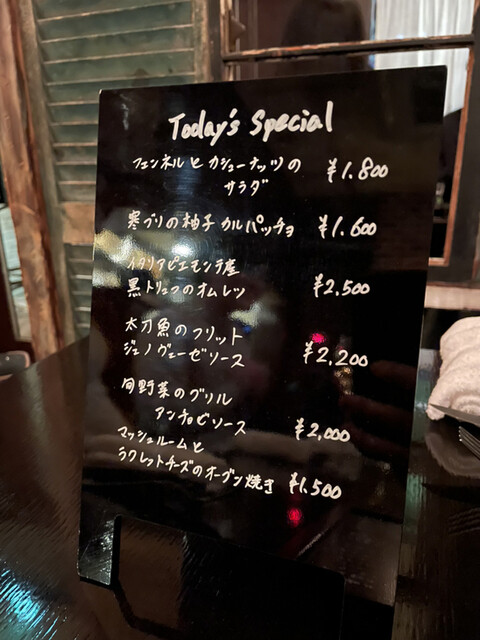 Today's Special
フェンネルとカシューナッツの
サラダ ¥1.800
寒ブリの柚子カルパッチョ ¥1.600
イタリアピエモンテ産
黒トリュフのオムレツ ¥2,500
太刀魚のフリット
ジェノヴェーゼソース ¥2,200
旬野菜のグリル
アンチョビソース ¥2,000
マッシュルームと
ラクレットチーズのオーブン焼き ¥1,500